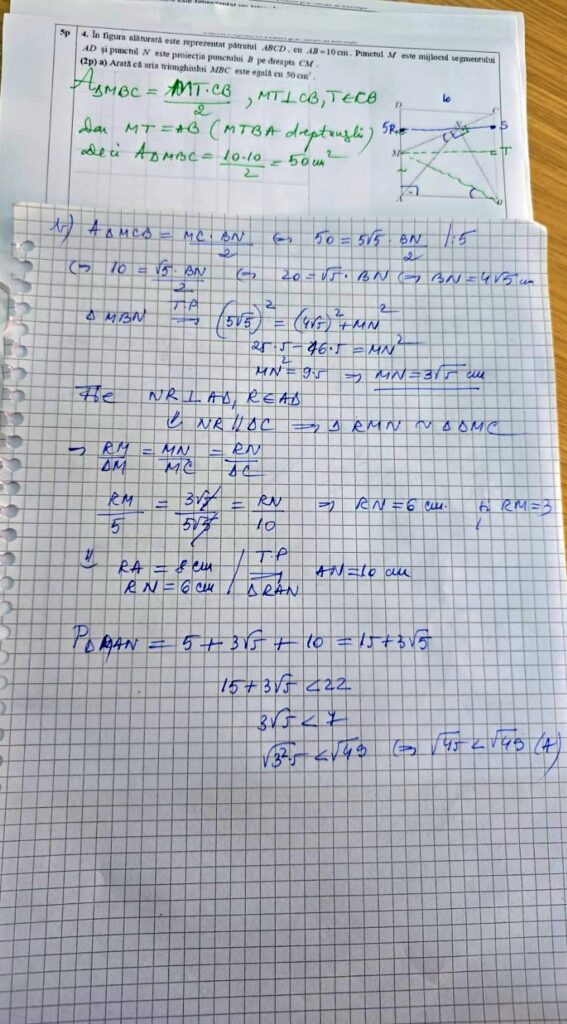 5p 4. În figura alăturată este reprezentat pătratul ABCD, cu AB = 10 cm. Punctul M este mijlocul segmentului
AD și punctul N este proiecția punctului B pe dreapta CM.
(2p) a) Arată că aria triunghiului MBC este egală cu 50 cm².
A△MBC = MT·CB/2, MT⊥CB, T∈CB
Dar MT = AB (MTBA dreptunghi)
Deci A△MBC = 10·10/2 = 50 cm²
D 10 C
5 R N S
M T
A B
b) A△MCB = MC·BN/2 ⇔ 50 = 5√5·BN/2 |:5
⇔ 10 = √5·BN/2 ⇔ 20 = √5·BN ⇔ BN = 4√5 cm
△MBN T.P ⇒ (5√5)² = (4√5)² + MN²
25·5 − 16·5 = MN²
MN² = 9·5 ⇒ MN = 3√5 cm
Fie NR⊥AD, R∈AD
⇓ NR∥DC ⇒ △RMN ~ △DMC
⇒ RM/DM = MN/MC = RN/DC
RM/5 = 3√5/5√5 = RN/10 ⇒ RN = 6 cm. RM = 3
⇓ RA = 8 cm
RN = 6 cm / T.P ⇒ △RAN AN = 10 cm
P△MAN = 5 + 3√5 + 10 = 15 + 3√5
15 + 3√5 < 22
3√5 < 7
√3²·5 < √49 ⇔ √45 < √49 (A)